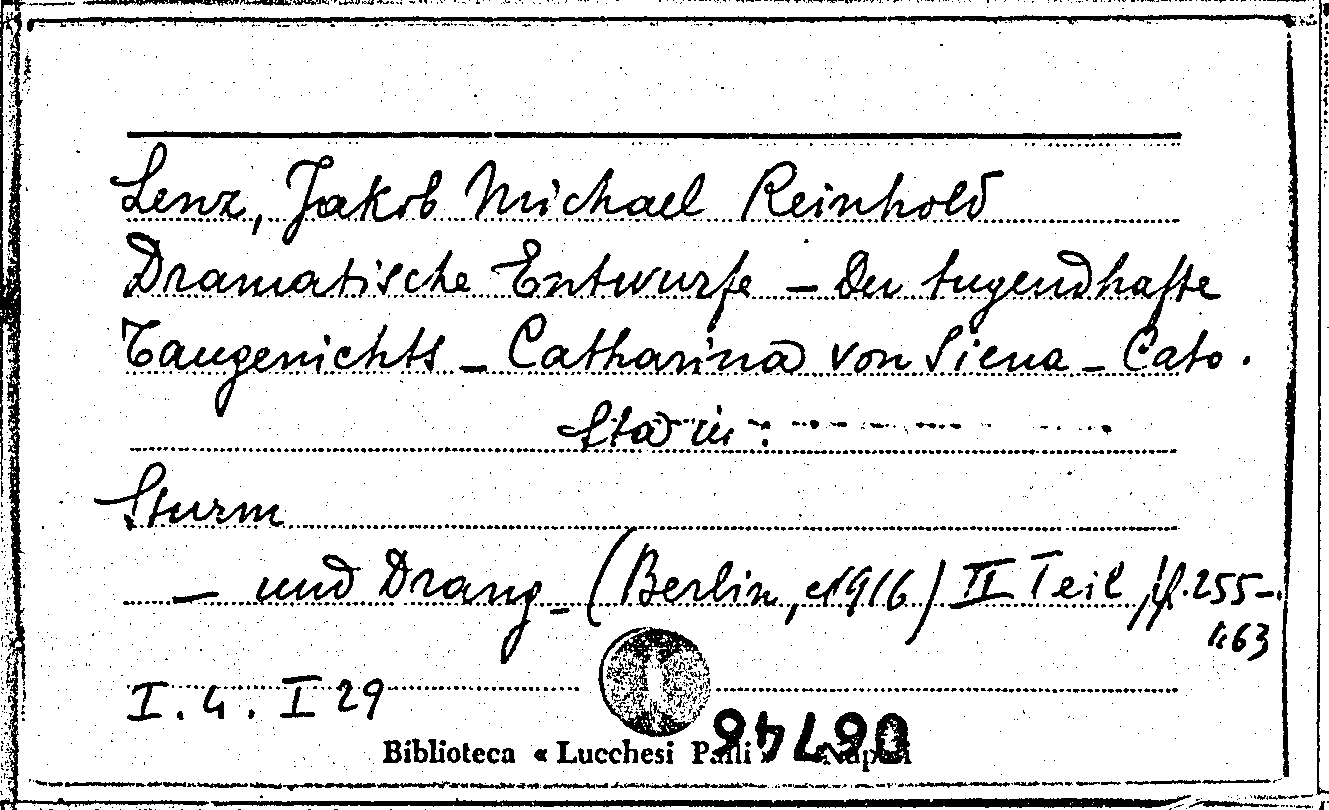 Lenz, Jakob Michael Reinhold
Dramatische Entwurfe – Der tugendhafte
Taugenichts – Catharina von Siena – Cato.
Sta in:
Sturm
– und Drang – (Berlin, 1916) II Teil, p. 255–
463
I. 4. I 29
Biblioteca « Lucchesi Palli